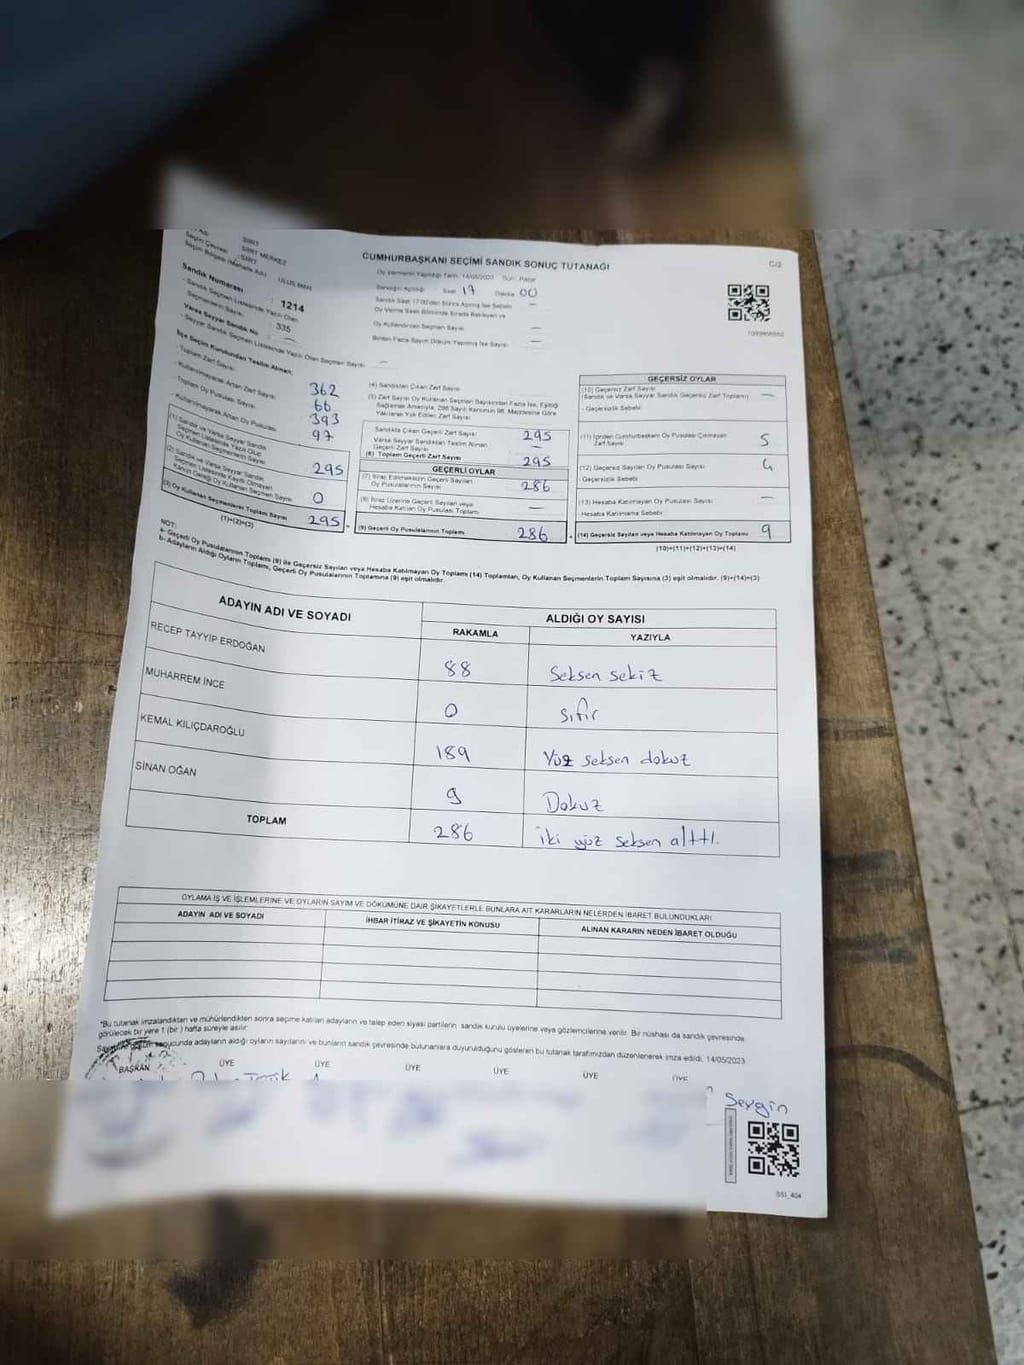 SİİRT
Seçim Çevresi : SİİRT MERKEZ
Seçim Bölgesi (Mahalle Adı) : ULUS MAH.
CUMHURBAŞKANI SEÇİMİ SANDIK SONUÇ TUTANAĞI
C/2
Oy Vermenin Yapıldığı Tarih: 14/05/2023 Gün: Pazar
Sandığın Açıldığı: Saat 17 Dakika 00
Sandık Numarası : 1214
Sandık Seçmen Listesinde Yazılı Olan
Seçmenlerin Sayısı : 335
Varsa Seyyar Sandık No : —
Seyyar Sandık Seçmen Listesinde Yazılı Olan Seçmen Sayısı : —
Sandık Saat 17:00'den Sonra Açılmış İse Sebebi —
Oy Verme Saati Bitiminde Sırada Bekleyen ve
Oy Kullandırılan Seçmen Sayısı —
Birden Fazla Sayım Döküm Yapılmış İse Sayısı —
İlçe Seçim Kurulundan Teslim Alınan;
- Toplam Zarf Sayısı 362
- Kullanılmayarak Artan Zarf Sayısı 66
- Toplam Oy Pusulası Sayısı 393
- Kullanılmayarak Artan Oy Pusulası 97
(1) Sandık ve Varsa Seyyar Sandık
Seçmen Listesinde Yazılı Olup
Oy Kullanan Seçmenlerin Sayısı 295
(2) Sandık ve Varsa Seyyar Sandık
Seçmen Listesinde Kayıtlı Olmayan
Kanun Gereği Oy Kullanan Seçmen Sayısı 0
(3) Oy Kullanan Seçmenlerin Toplam Sayısı 295
(1)+(2)=(3)
(4) Sandıktan Çıkan Zarf Sayısı
(5) Zarf Sayısı Oy Kullanan Seçmen Sayısından Fazla İse, Eşitliği
Sağlamak Amacıyla, 298 Sayılı Kanunun 98. Maddesine Göre
Yakılarak Yok Edilen Zarf Sayısı
Sandıkta Çıkan Geçerli Zarf Sayısı 295
Varsa Seyyar Sandıktan Teslim Alınan
Geçerli Zarf Sayısı —
(6) Toplam Geçerli Zarf Sayısı 295
GEÇERLİ OYLAR
(7) İtiraz Edilmeksizin Geçerli Sayılan
Oy Pusulalarının Sayısı 286
(8) İtiraz Üzerine Geçerli Sayılan veya
Hesaba Katılan Oy Pusulası Toplamı —
(9) Geçerli Oy Pusulalarının Toplamı 286
GEÇERSİZ OYLAR
(10) Geçersiz Zarf Sayısı
(Sandık ve Varsa Seyyar Sandık Geçersiz Zarf Toplamı) —
- Geçersizlik Sebebi:
(11) İçinden Cumhurbaşkanı Oy Pusulası Çıkmayan
Zarf Sayısı 5
(12) Geçersiz Sayılan Oy Pusulası Sayısı 4
Geçersizlik Sebebi:
(13) Hesaba Katılmayan Oy Pusulası Sayısı —
Hesaba Katılmama Sebebi:
(14) Geçersiz Sayılan veya Hesaba Katılmayan Oy Toplamı 9
(10)+(11)+(12)+(13)=(14)
NOT:
a- Geçerli Oy Pusulalarının Toplamı (9) ile Geçersiz Sayılan veya Hesaba Katılmayan Oy Toplamı (14) Toplamları, Oy Kullanan Seçmenlerin Toplam Sayısına (3) eşit olmalıdır. (9)+(14)=(3)
b- Adayların Aldığı Oyların Toplamı, Geçerli Oy Pusulalarının Toplamına (9) eşit olmalıdır.
ADAYIN ADI VE SOYADI
ALDIĞI OY SAYISI
RAKAMLA YAZIYLA
RECEP TAYYİP ERDOĞAN 88 Seksen sekiz
MUHARREM İNCE 0 Sıfır
KEMAL KILIÇDAROĞLU 189 Yüz seksen dokuz
SİNAN OĞAN 9 Dokuz
TOPLAM 286 iki yüz seksen alttı.
OYLAMA İŞ VE İŞLEMLERİNE VE OYLARIN SAYIM VE DÖKÜMÜNE DAİR ŞİKAYETLERLE BUNLARA AİT KARARLARIN NELERDEN İBARET BULUNDUKLARI
ADAYIN ADI VE SOYADI İHBAR İTİRAZ VE ŞİKAYETİN KONUSU ALINAN KARARIN NEDEN İBARET OLDUĞU
"Bu tutanak imzalandıktan ve mühürlendikten sonra seçime katılan adayların ve talep eden siyasi partilerin sandık kurulu üyelerine veya gözlemcilerine verilir. Bir nüshası da sandık çevresinde
görülecek bir yere 1 (bir) hafta süreyle asılır.
sonucunda adayların aldığı oyların sayılarını ve bunların sandık çevresinde bulunanlara duyurulduğunu gösteren bu tutanak tarafımızdan düzenlenerek imza edildi. 14/05/2023
BAŞKAN ÜYE ÜYE ÜYE ÜYE ÜYE ÜYE
Sevgin
SSI_404